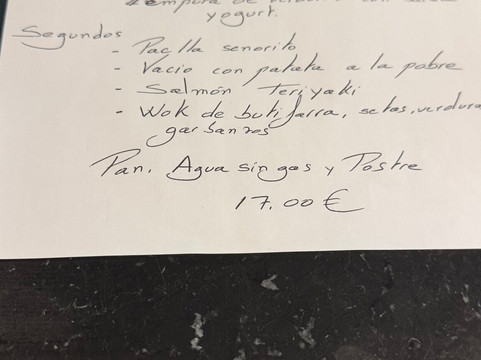 tempura de con
yogurt.
Segundos
- Paella senorito
- Vacio con patata a la pobre
- Salmón Teriyaki
- Wok de butifarra, setas, verdura
garbanzos
Pan, Agua sin gas y Postre
17.00 €